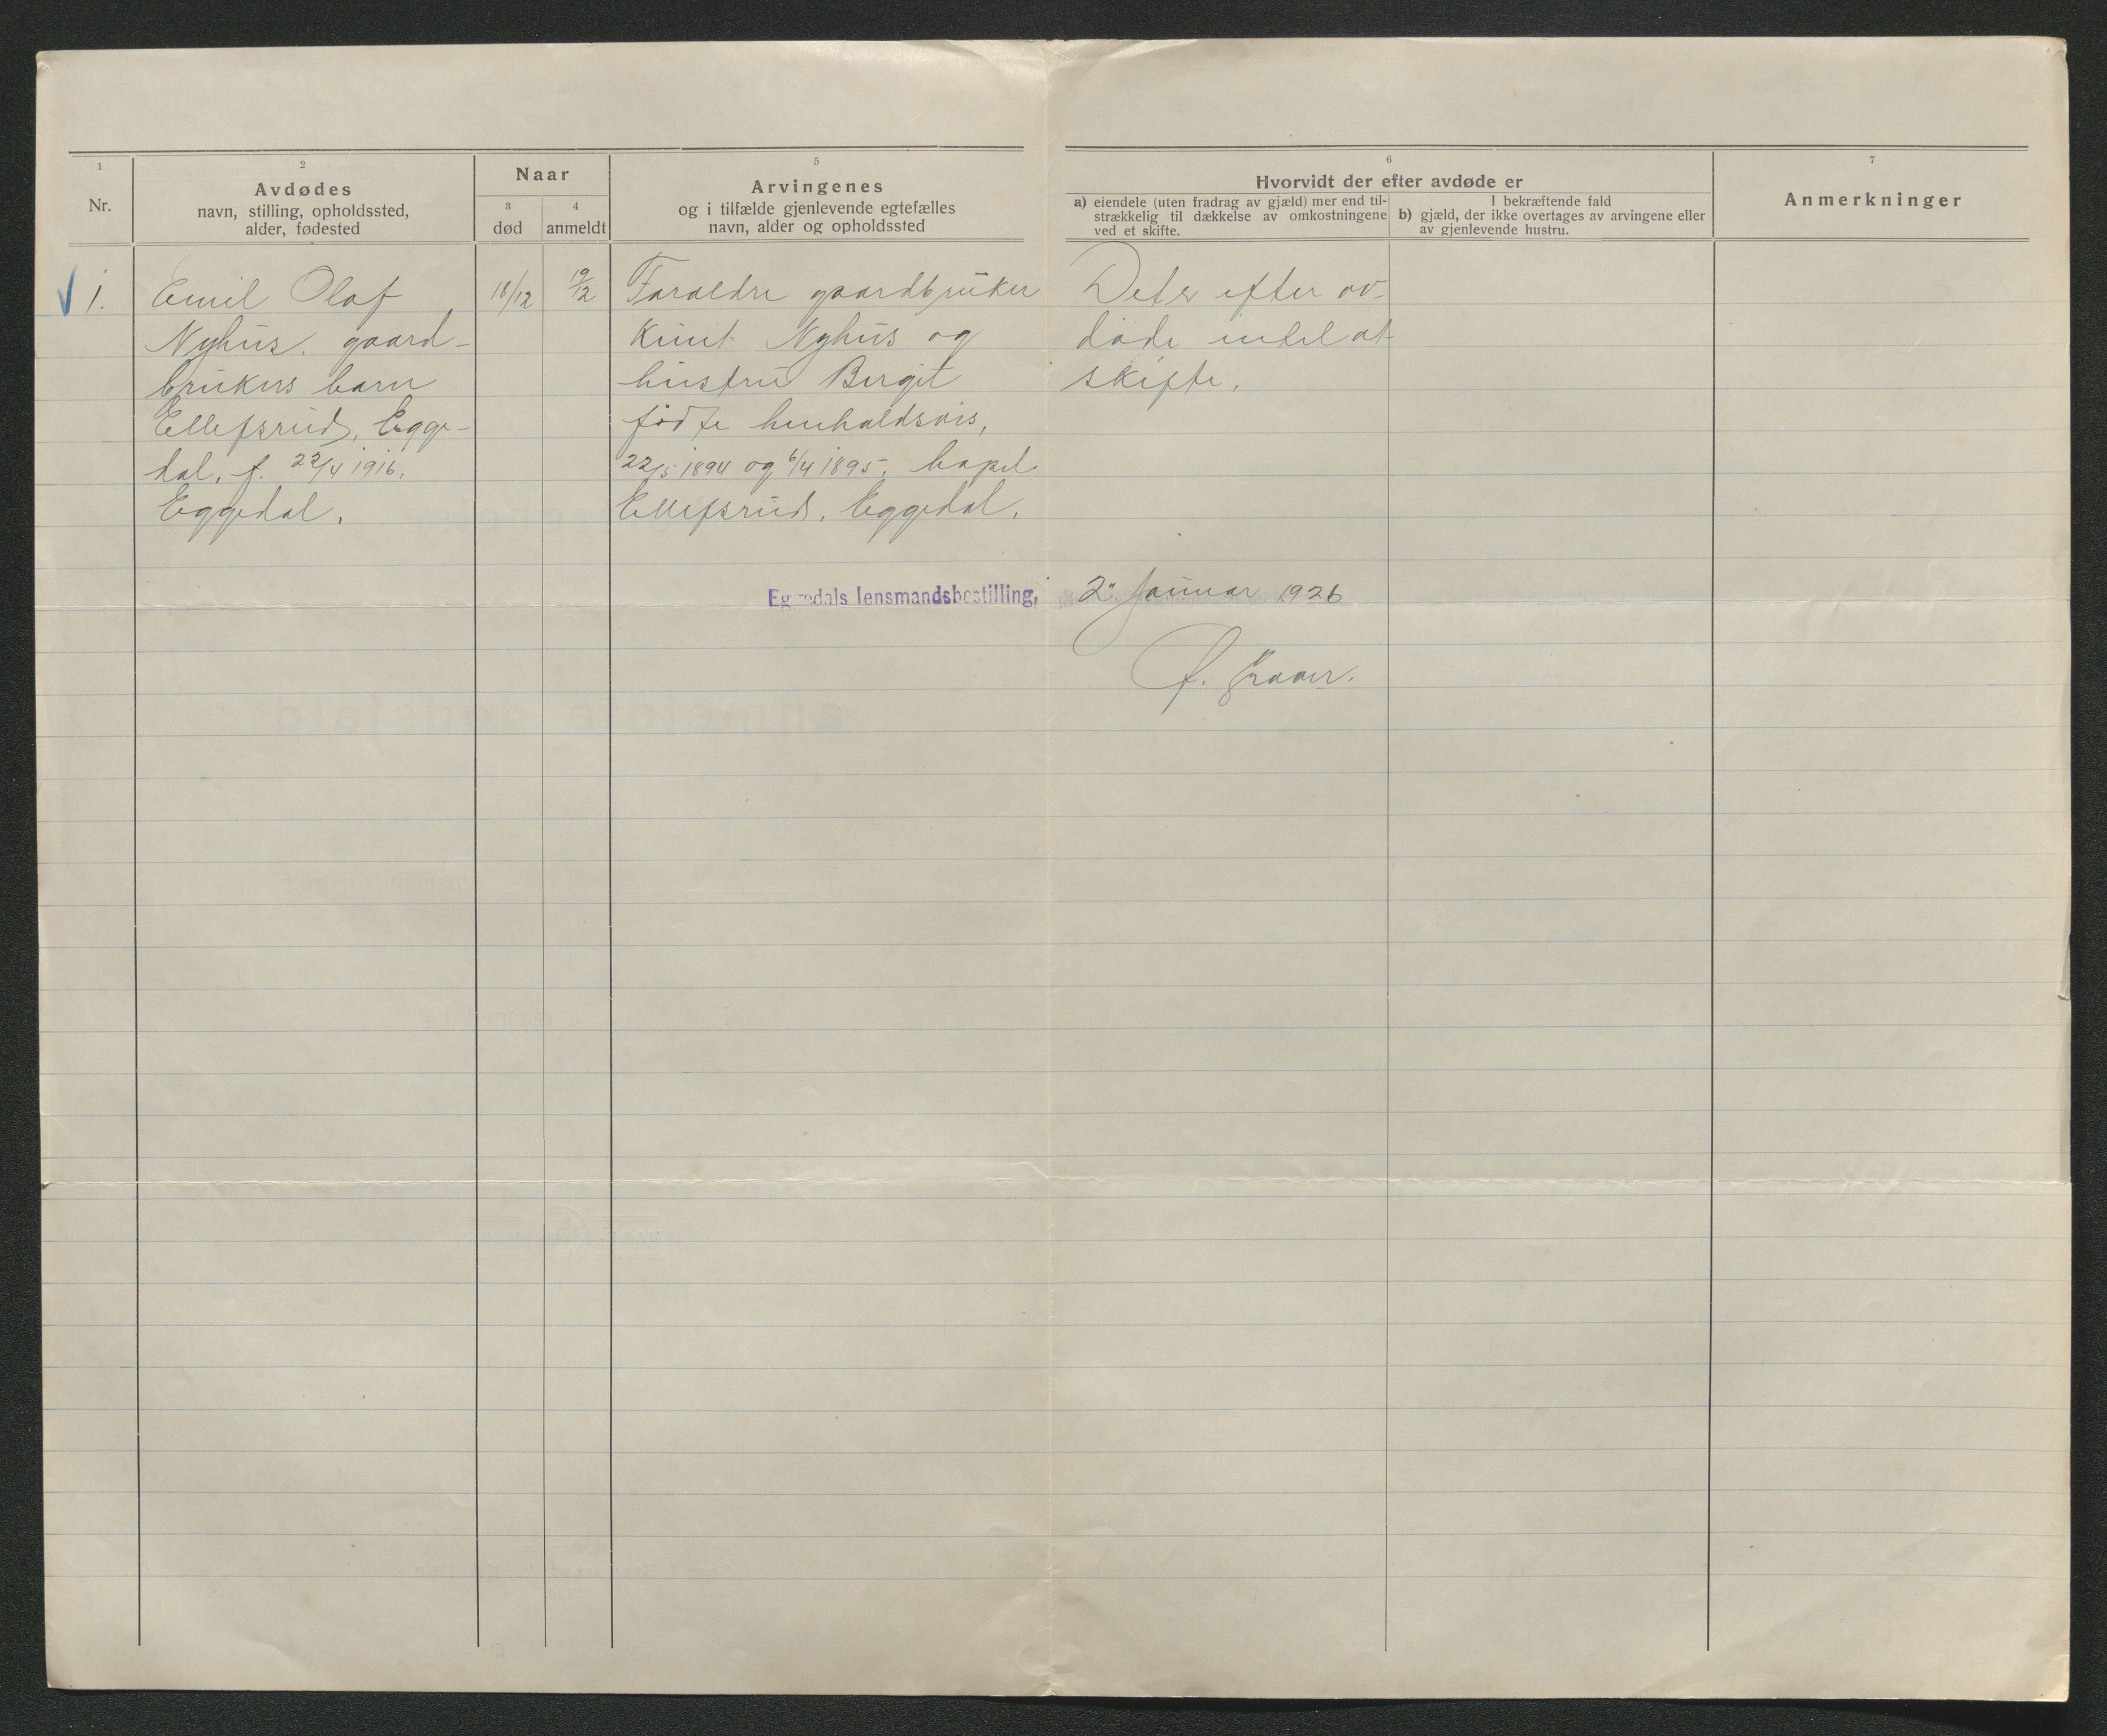 1
Nr.
2
Avdødes
navn, stilling, opholdssted,
alder, fødested
Naar
3
død
4
anmeldt
5
Arvingenes
og i tilfælde gjenlevende egtefælles
navn, alder og opholdssted
6
Hvorvidt der efter avdøde er
a) eiendele (uten fradrag av gjæld) mer end til-
strækkelig til dækkelse av omkostningene
ved et skifte.
I bekræftende fald
b) gjæld, der ikke overtages av arvingene eller
av gjenlevende hustru.
7
Anmerkninger
1.
Emil Olaf
Nyhus. gaard-
brukers barn
Ellefsrud, Egge-
dal, f. 22/4 1916.
Eggedal.
18/12
19/12
Foraeldre gaardbruker
Knut Nyhus og
hustru Bergit
födte henholdsvis,
22/5 1894 og 6/4 1895, bopel
Ellefsrud, Eggedal.
Det er efter av-
døde intet at
skifte.
Eggedals lensmandsbestilling,
2 Januar 1926